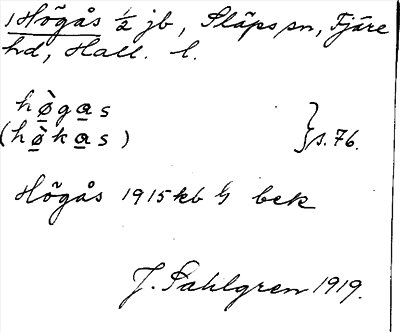 1 Högås ½ jb, Släps sn, Fjäre
hd, Hall. l.
hø̀gas
(hø̀kas) } s. 76.
Högås 1915 kb bek
J. Sahlgren 1919.